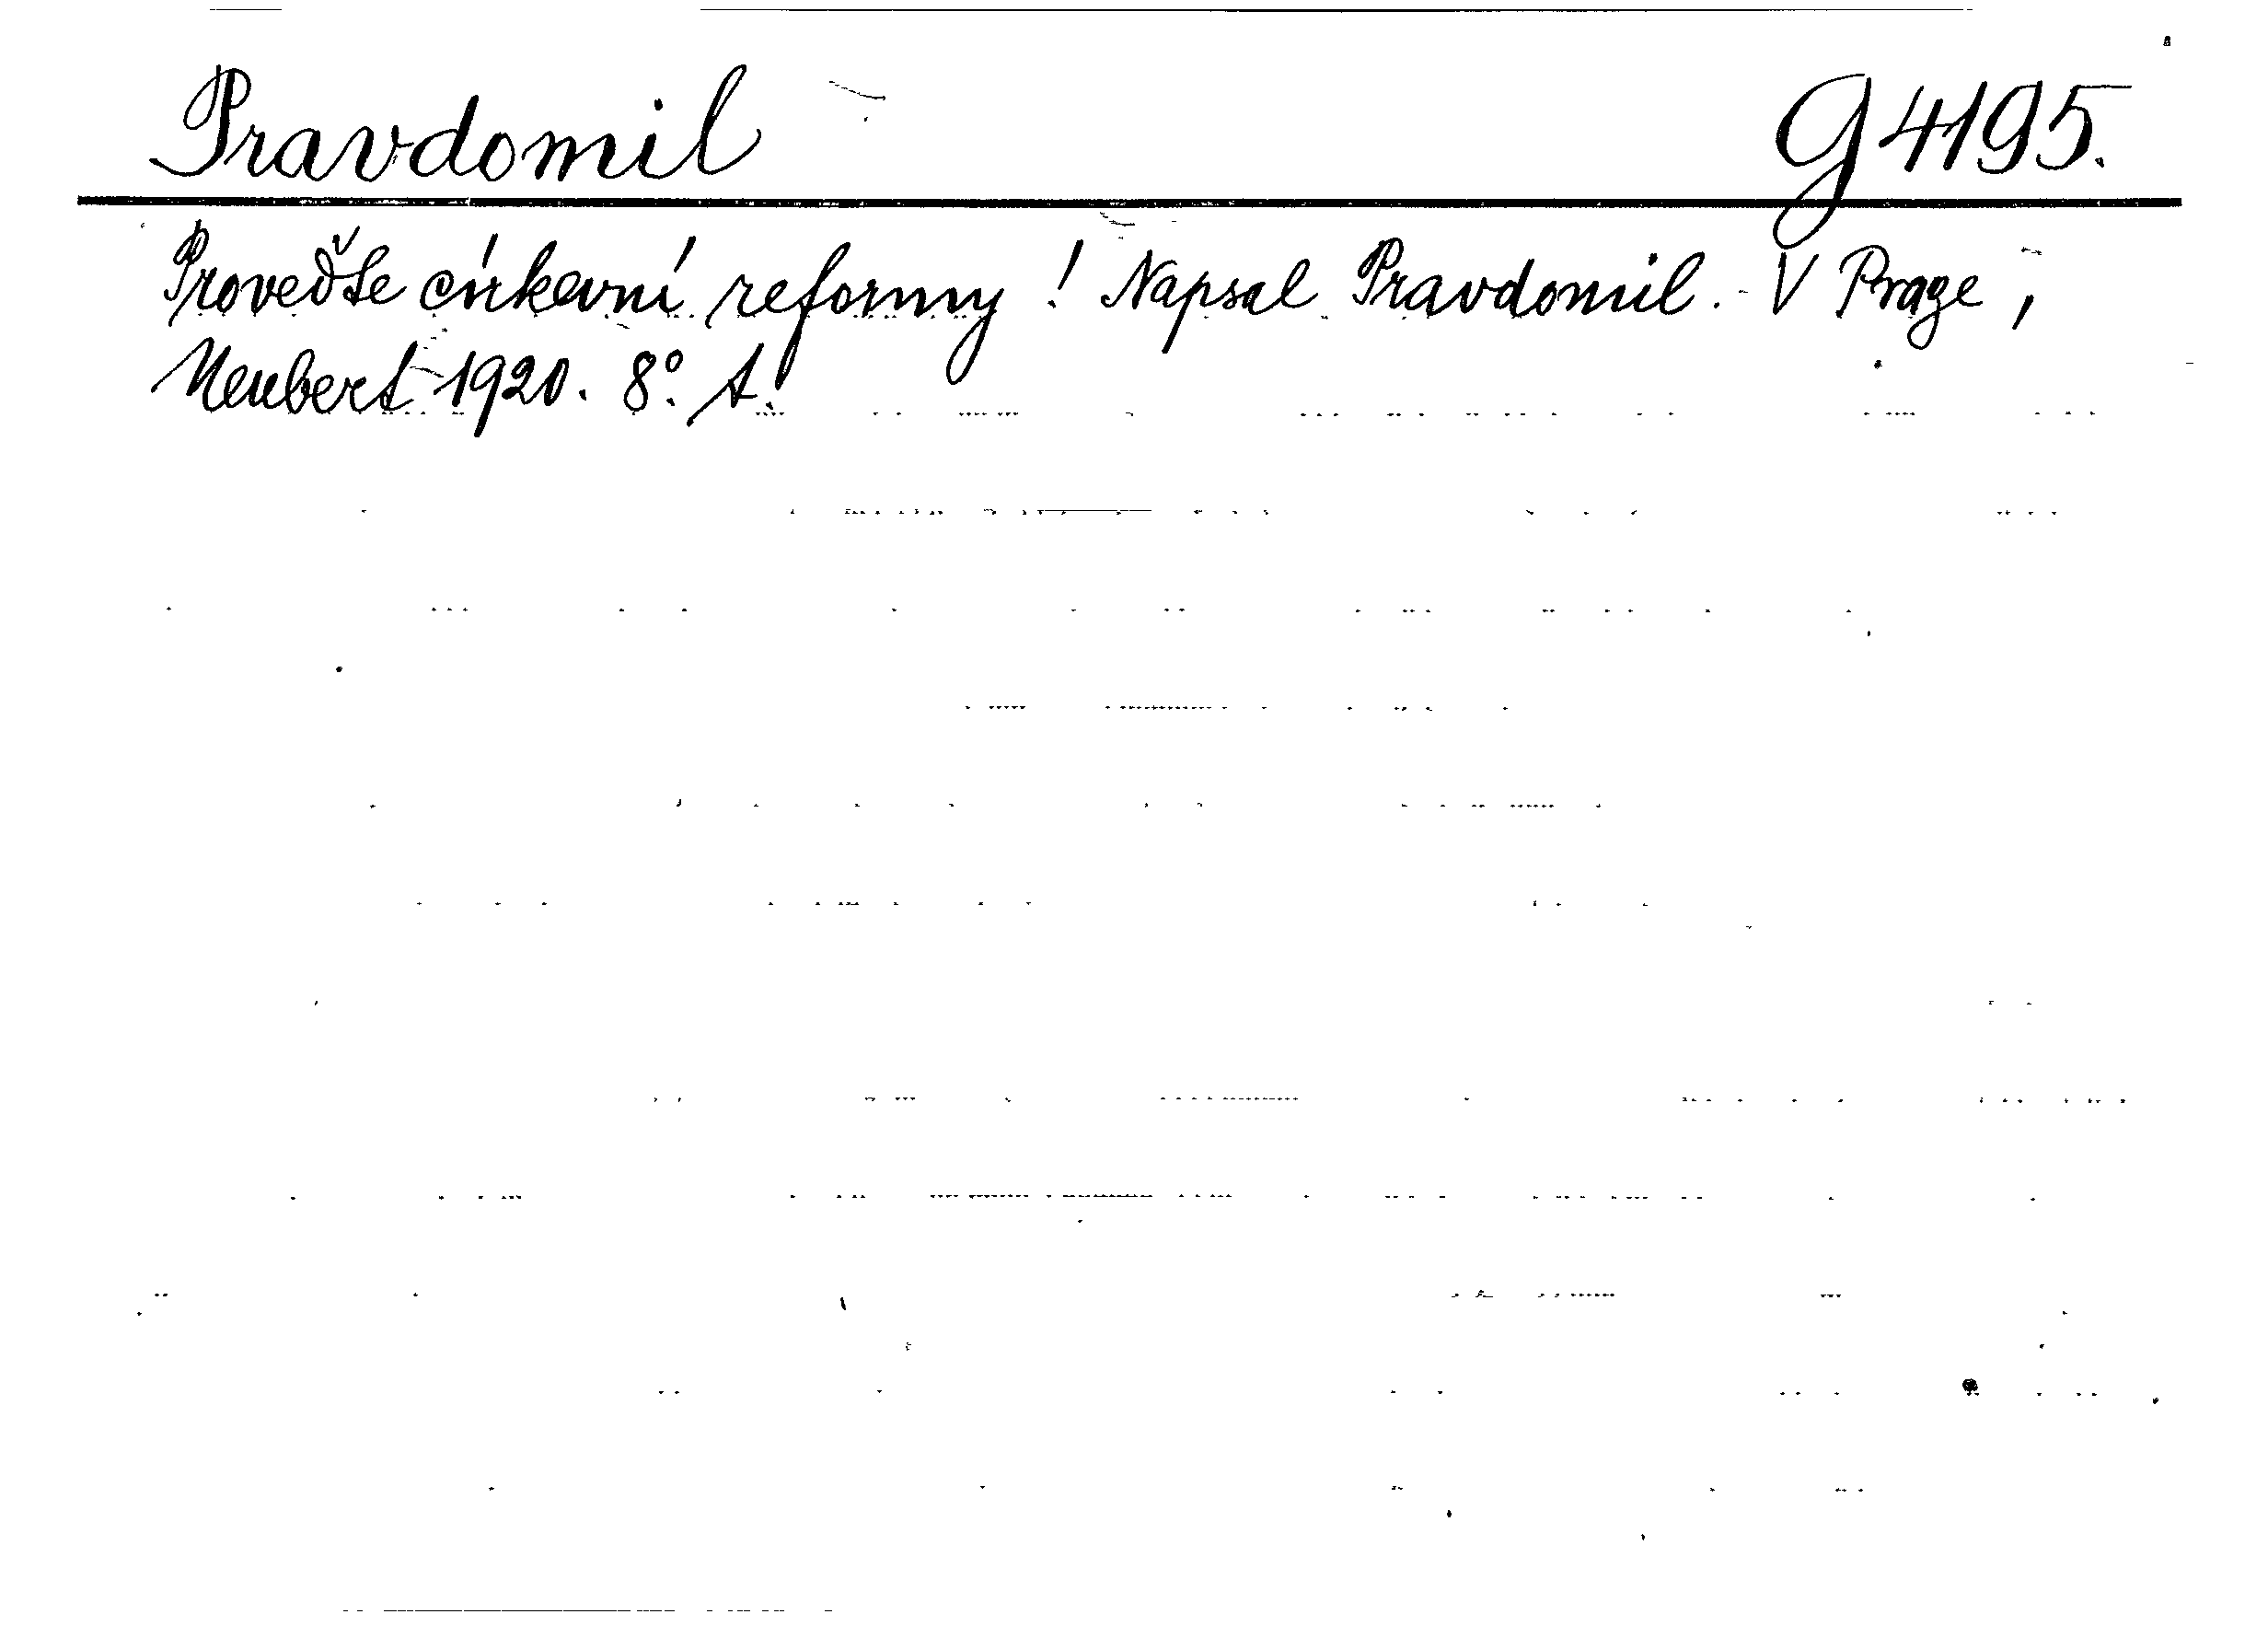 Pravdomil G 4195.
Proveďte církevní reformy! Napsal Pravdomil. - V Praze,
Neubert 1920. 8°. A.